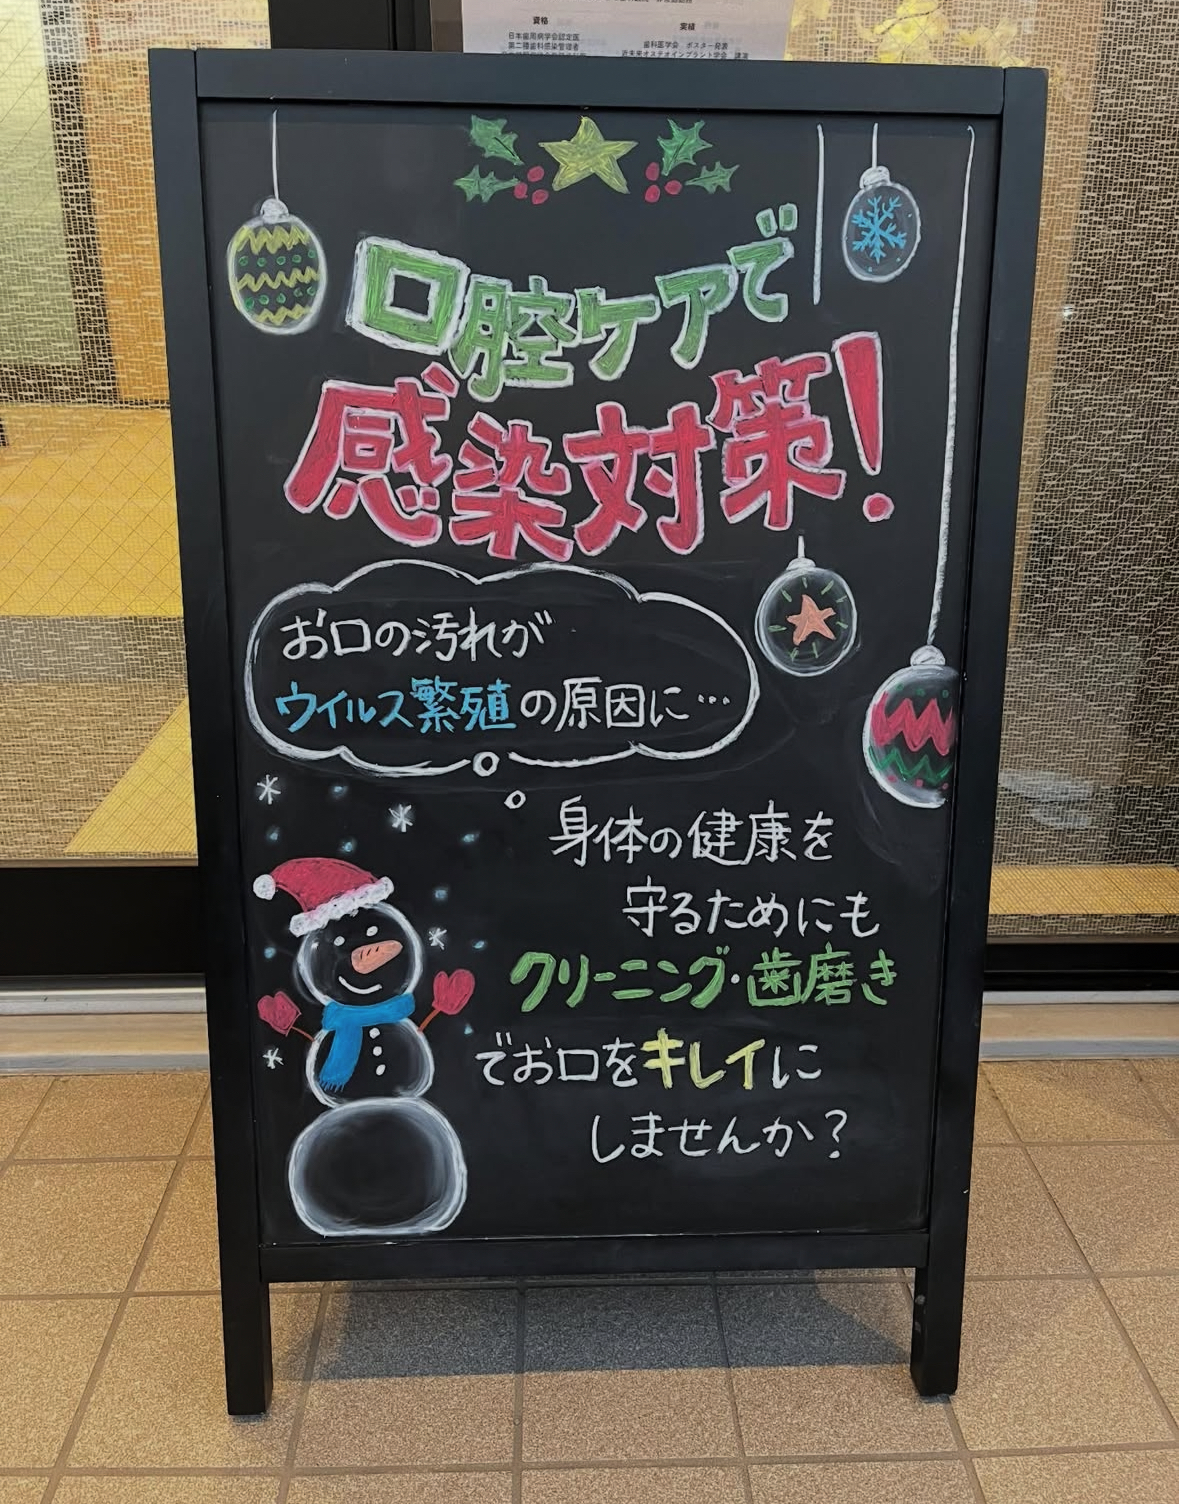 資格
実績
日本歯周病学会認定医
第二種歯科感染管理者
歯科医学会 ポスター発表
近未来オステオインプラント学会 講演
口腔ケアで
感染対策!
お口の汚れが
ウイルス繁殖の原因に…
身体の健康を
守るためにも
クリーニング・歯磨き
でお口をキレイに
しませんか?